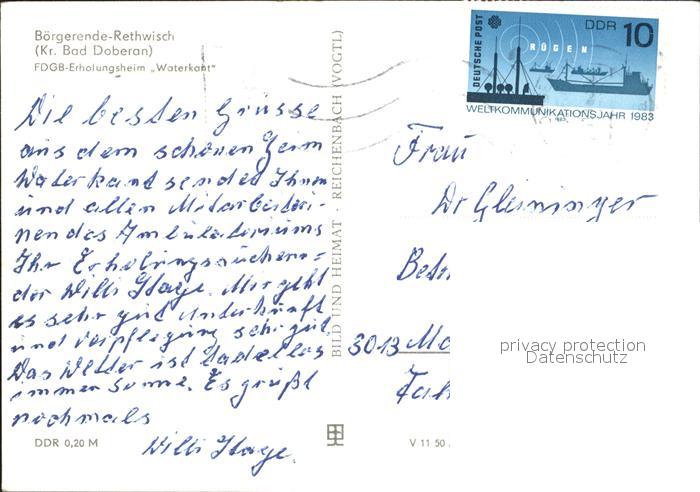 Börgerende-Rethwisch
(Kr. Bad Doberan)
FDGB-Erholungsheim „Waterkant"
Die besten Grüsse
aus dem schönen Heim
Waterkand sendet Ihnen
und allen Mitarbeiteri-
nen des Ambulatoriums
Ihr Erholungssuchen-
der Willi Stage. Mir geht
es sehr gut Unterkunft
und Verpflegung sehr gut.
Das Wetter ist tadellos
immer Sonne. Es grüßt
nochmals
Willi Stage.
DDR 0,20 M
BILD UND HEIMAT · REICHENBACH (VOGTL)
V 11 50
DEUTSCHE POST
DDR 10
RÜGEN
WELTKOMMUNIKATIONSJAHR 1983
Frau
Dr Gleininger
Betr
3013 Ma
Fah
privacy protection
Datenschutz